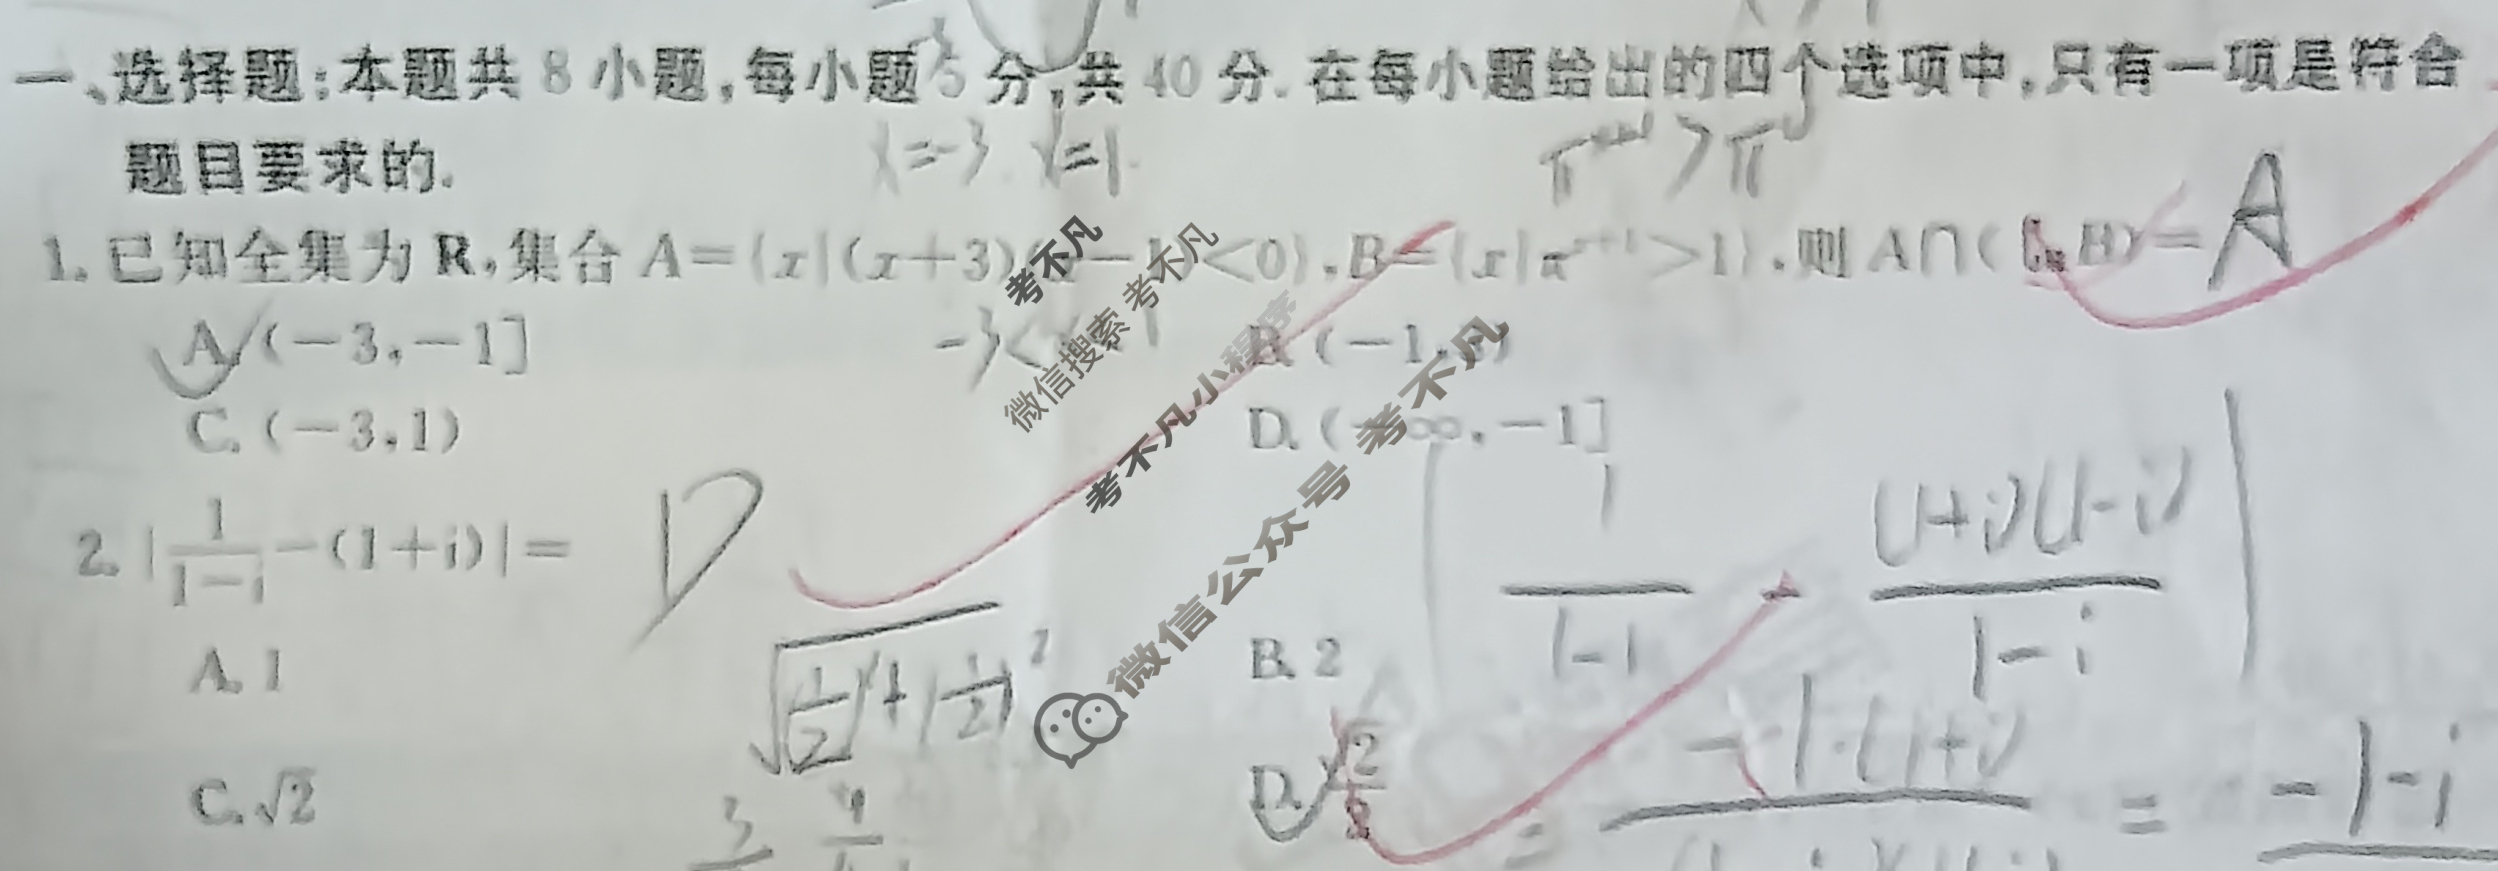 一、选择题:本题共 8 小题,每小题 5 分,共 40 分. 在每小题给出的四个选项中,只有一项是符合
题目要求的.
x=-3. x=1.
π^{x+1}>π^0
1. 已知全集为 R,集合 A={x|(x+3)(x-1)<0},B={x|π^{x+1}>1},则 A∩(∁_R B)= A
A. (-3,-1]
-3<x<1
B. (-1,1)
C. (-3,1)
D. (-∞,-1]
2. |\frac{1}{1-i}-(1+i)|= D
| \frac{1}{1-i} - \frac{(1+i)(1-i)}{1-i} |
A. 1
B. 2
\sqrt{(\frac{1}{2})^2+(\frac{1}{2})^2}
C. √2
D. \frac{√2}{2}
= \frac{-1·(1+i)}{(1-i)(1+i)} = -1-i
考不凡
微信搜索 考不凡
考不凡小程序
微信公众号 考不凡